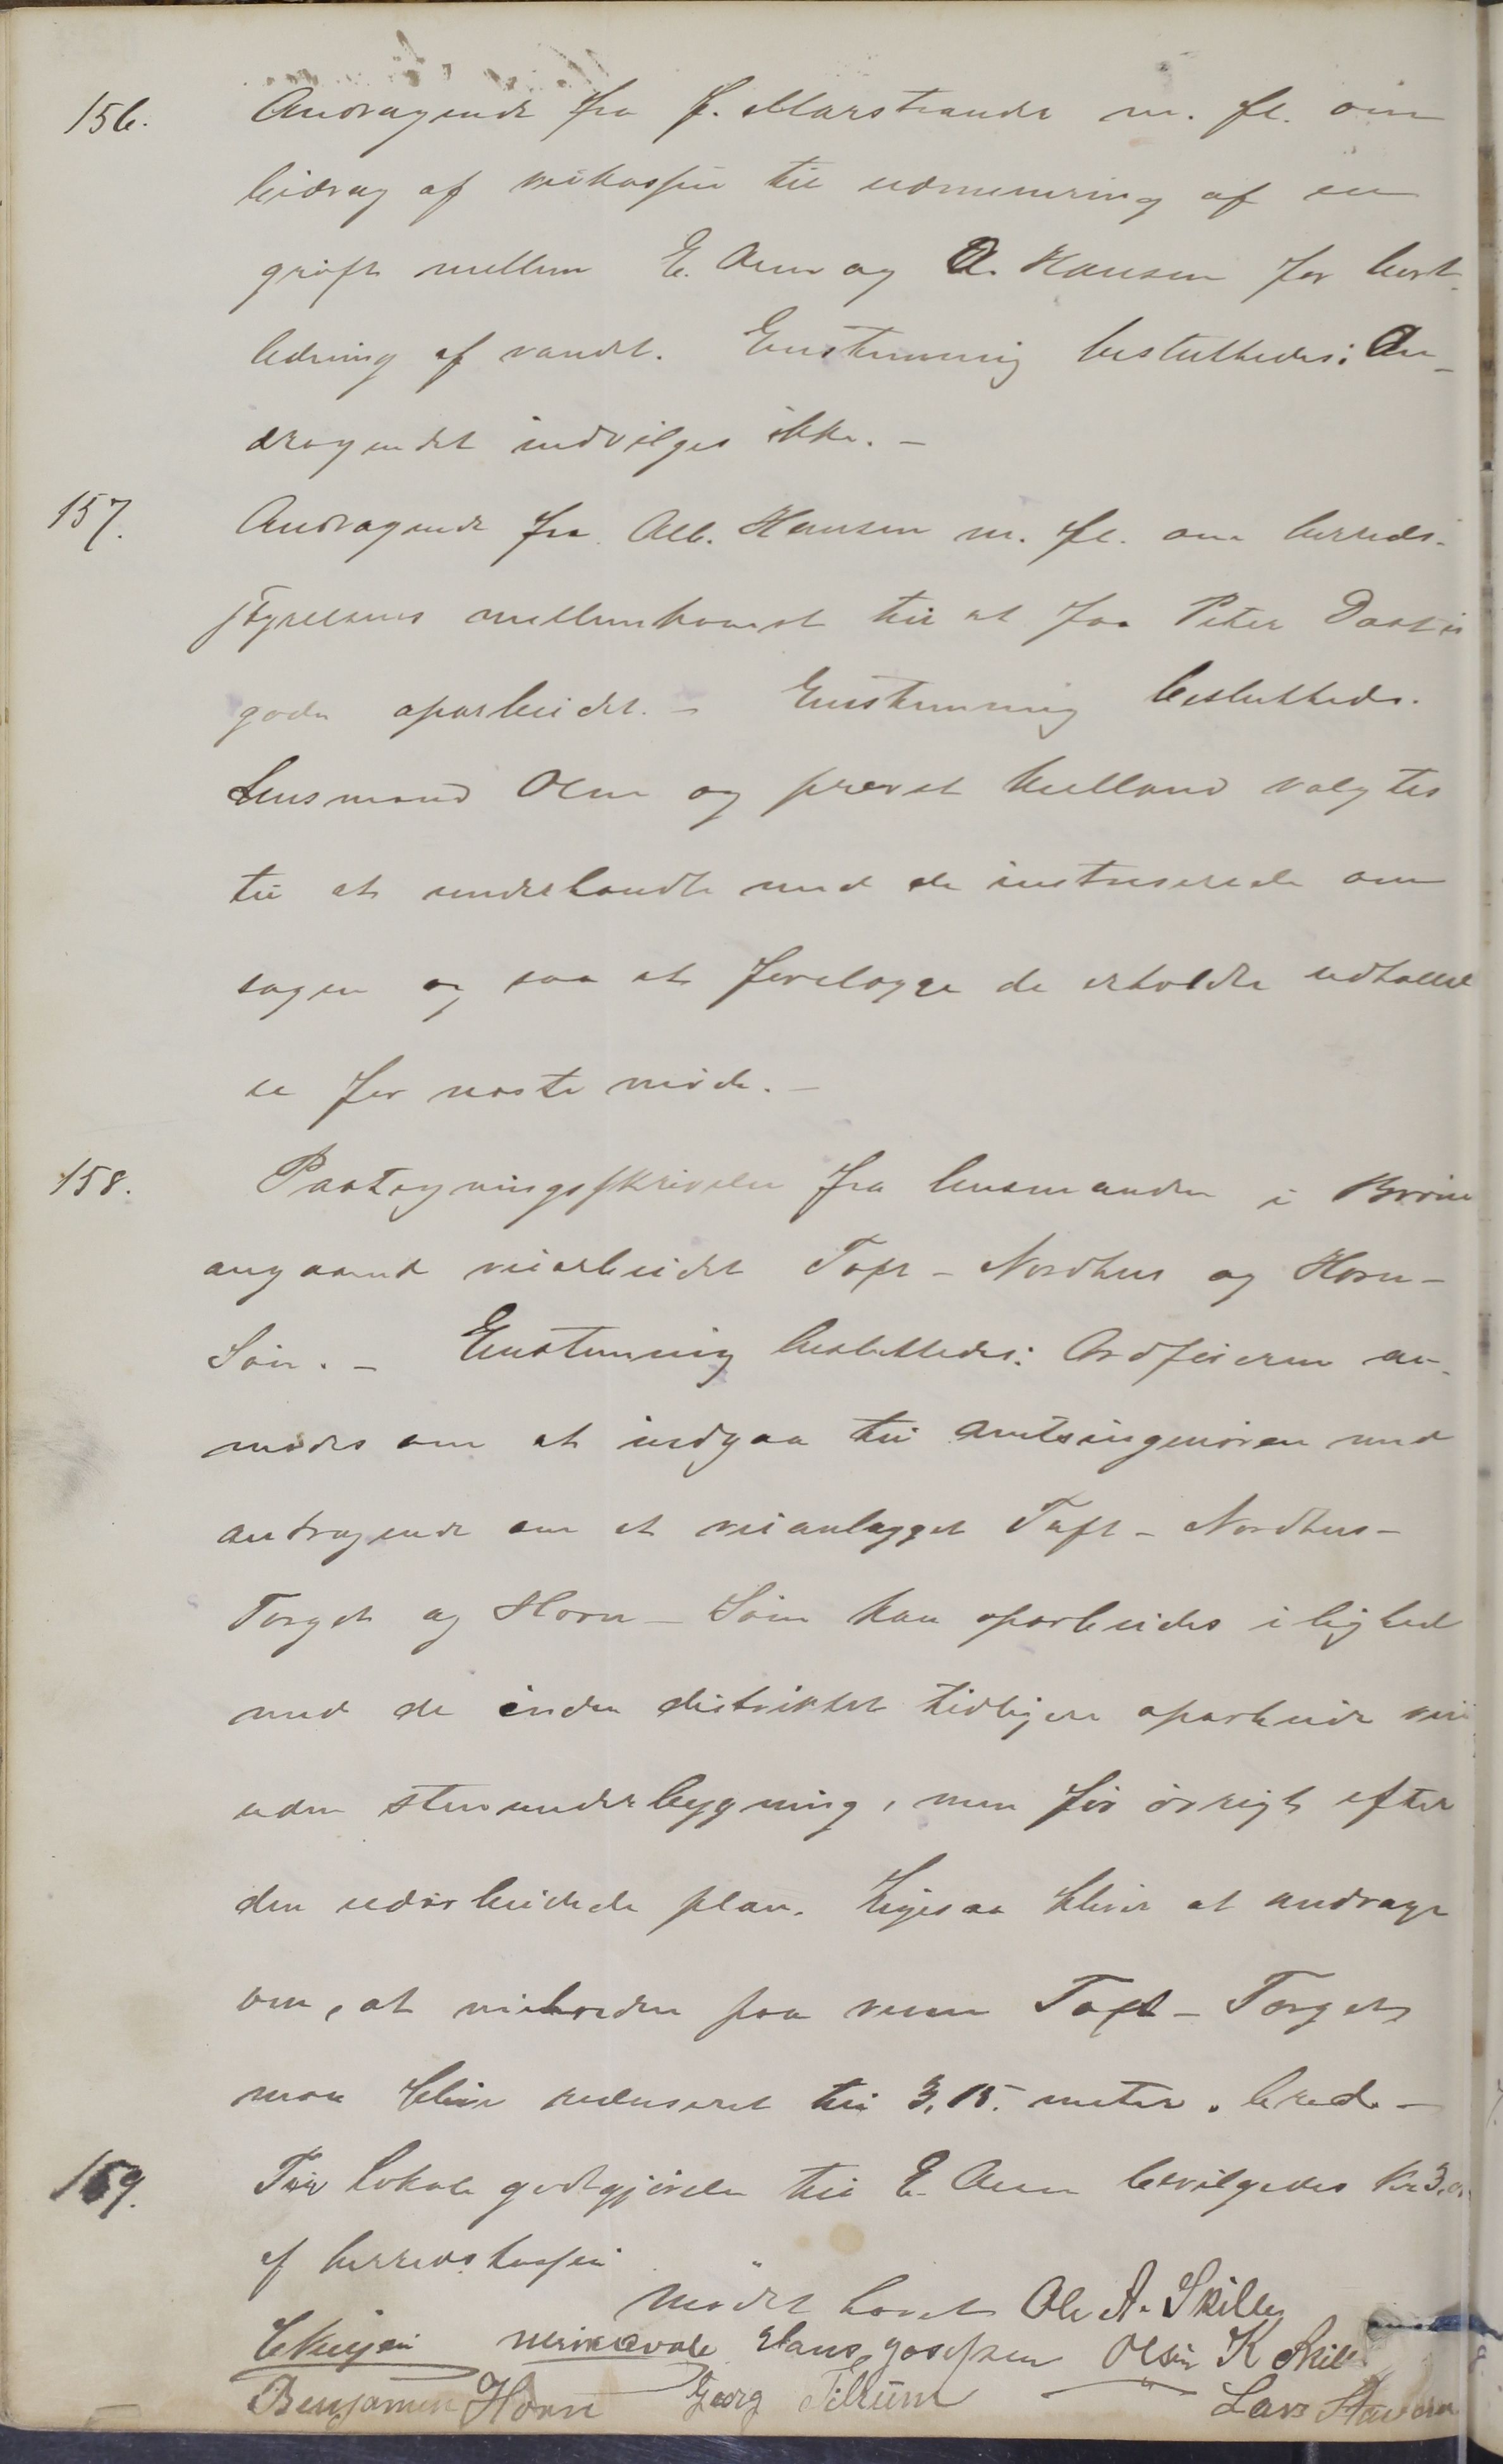 156. Andragende fra J. Marstrander m. fl. om
bidrag af veikassen til udminering af en
grøft mellem E. Aune og A. Hansen for bort-
ledning af vandet. Enstemmig besluttedes: An-
dragendet indvilges ikke. –
157. Andragende fra Alb. Hansen m. fl. om herreds-
styrelsens mellemkomst til at faa Peter Dass's
gade oparbeidet. – Enstemmig besluttedes.
Lensmand Olsen og provst Kielland valgtes
til at underhandle med de interesserede om
sagen og saa at forelægge de erholdte udtalel
se for næste møde. –
158. Paategningsskrivelse fra lensmanden i Brønø
angaaende veiarbeidet Toft – Nordhus og Horn –
Søin. – Enstemmig besluttedes: Ordføreren an-
modes om at indgaa til amtsingeniøren med
andragende om at veianlægget Toft – Nordhus –
Torget og Horn – Søin kan oparbeides i lighed
med de inden distriktet tidligere oparbeide vei
uden stenunderbygning, men for øvrigt efter
den udarbeidede plan. Ligesaa bliver at andrage
om, at veibreden paa veien Toft – Torget,
maa blive reduseret til 3,15. meter. bred. –
159. For lokale godtgjørelse til E. Aune bevilgedes Kr 3,00
af herredskassen
Mødet hævet Ole A. Skille
Hans Josefsen Olsen K Skille
Benjamin Horn Georg Tilrum Lars